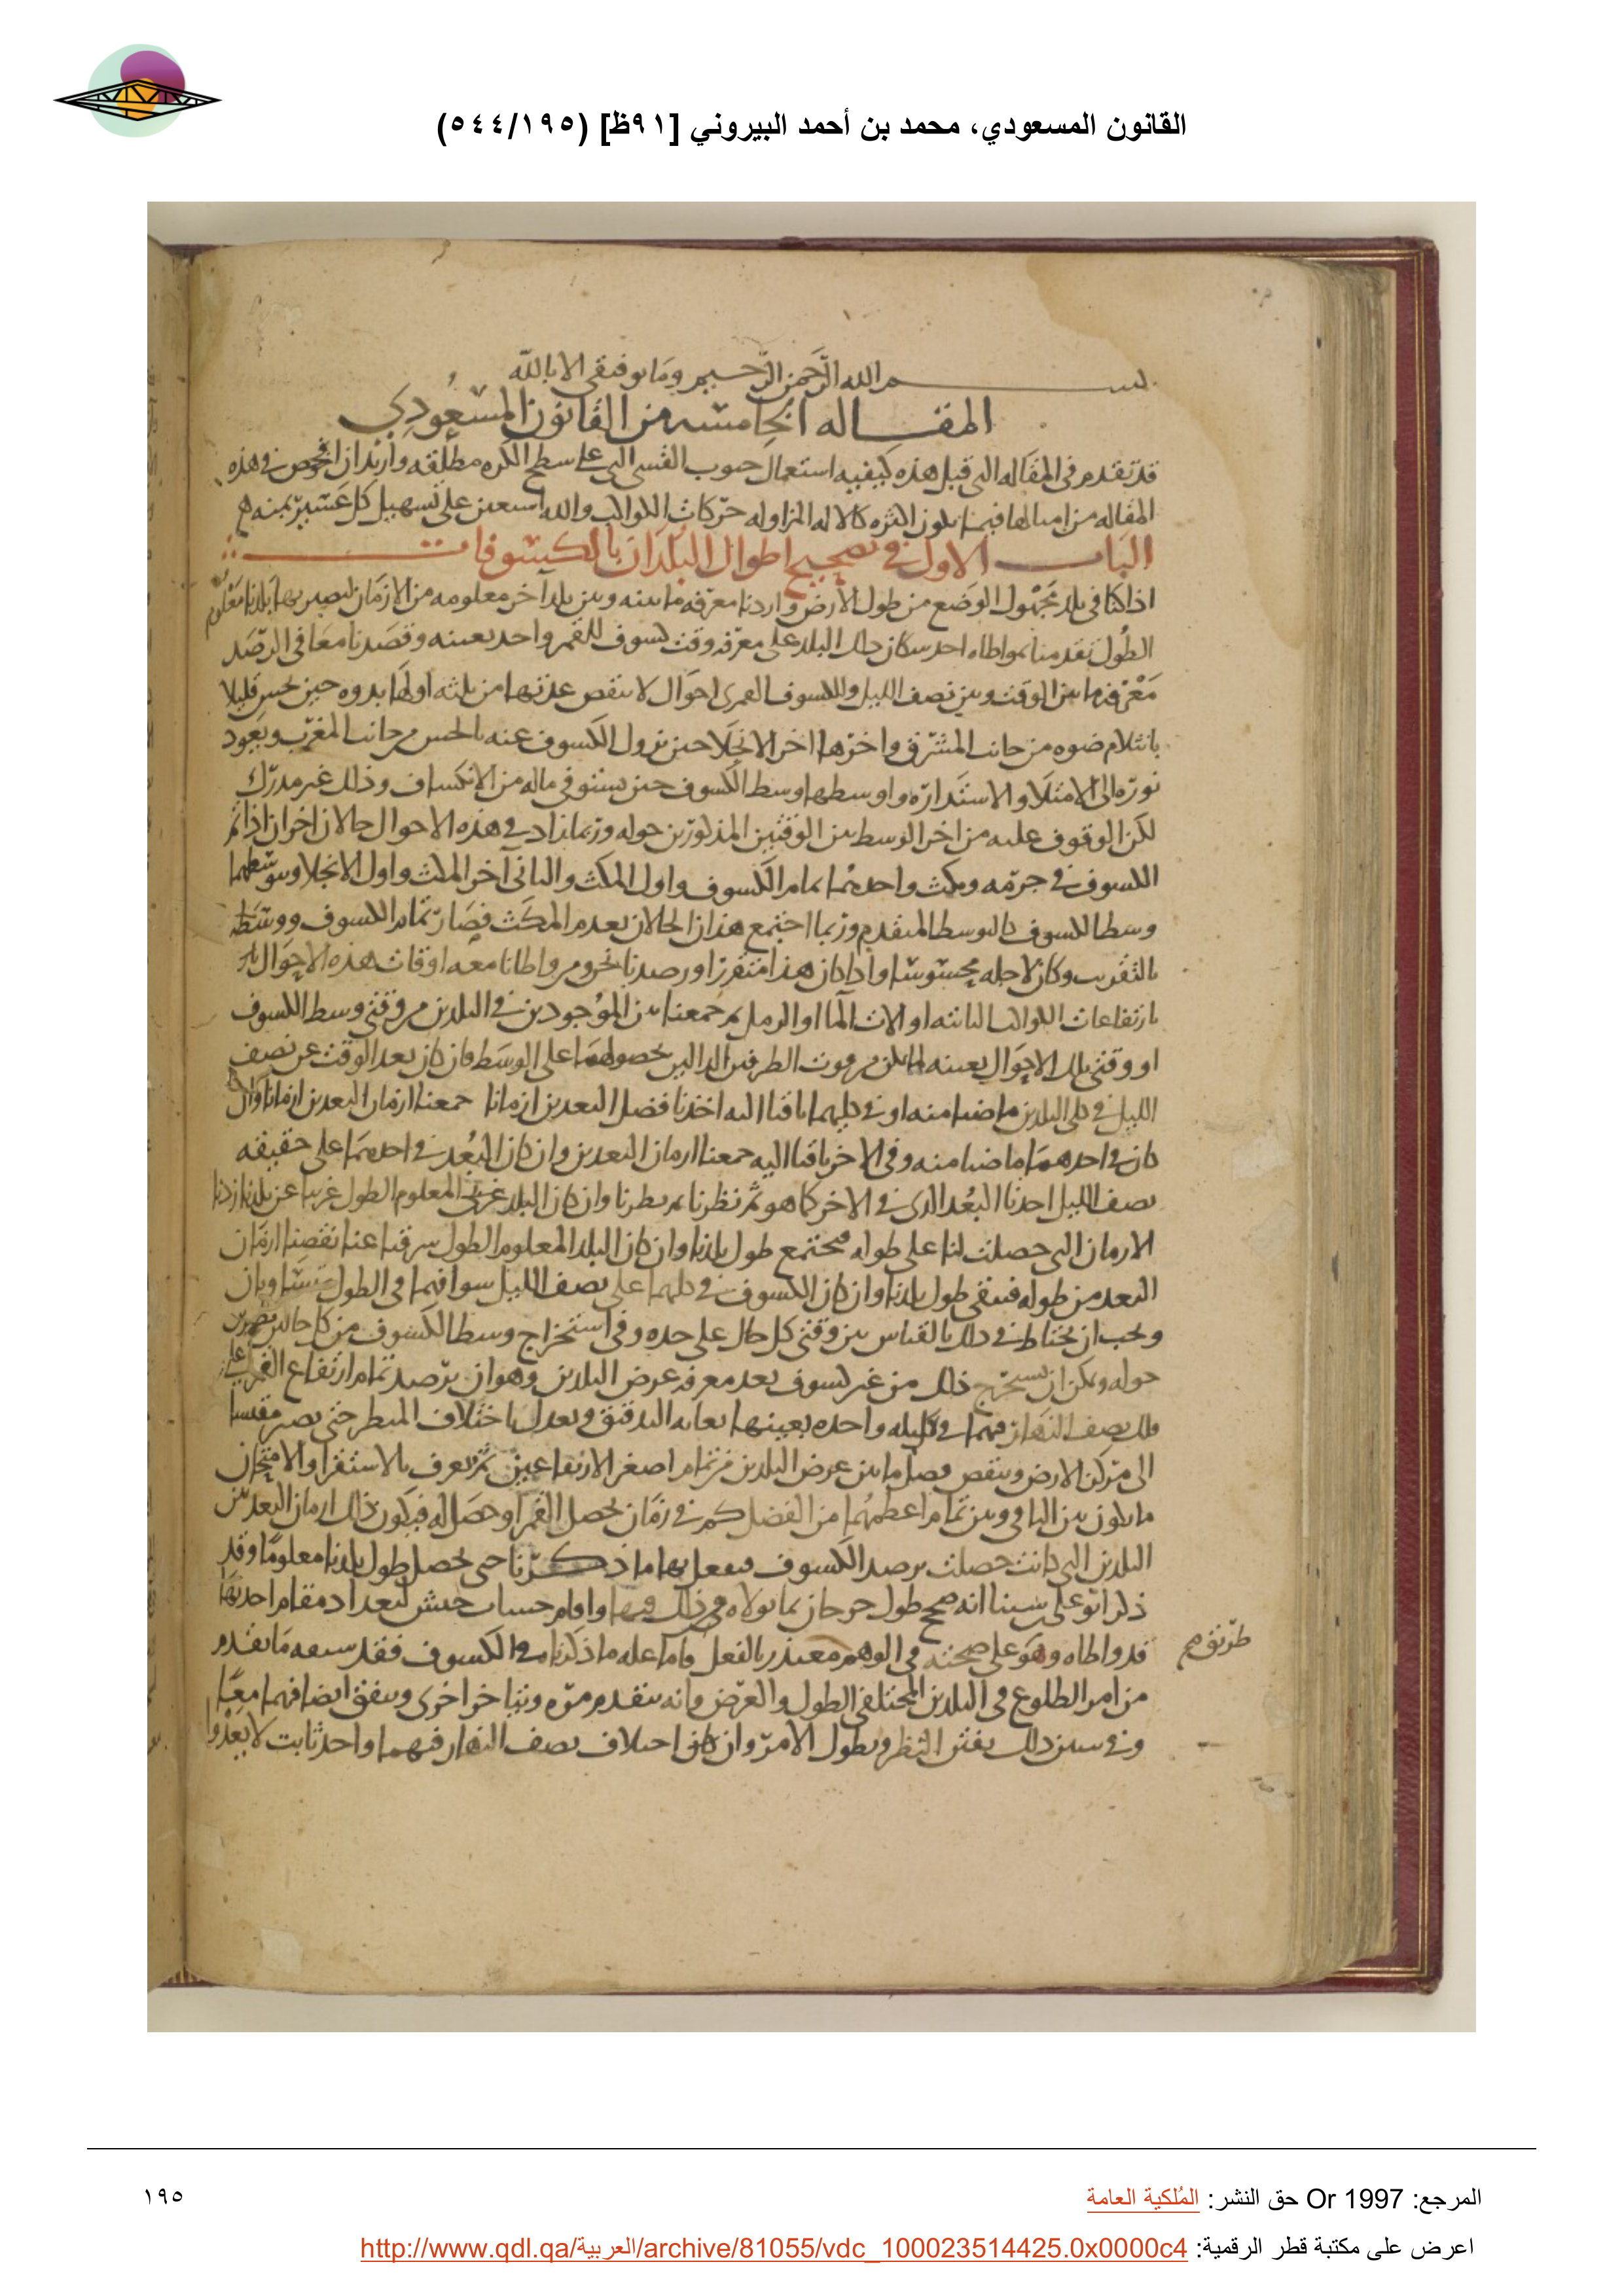 القانون المسعودي، محمد بن أحمد البيروني [٩١ظ] (٥٤٤/١٩٥)
بسم الله الرحمن الرحيم وما توفيقي الا بالله
المقاله الخامسه من القانون المسعودي
قد تقدم في المقاله التي قبل هذه كيفيه استعمال حبوب القسي التي على سطح الكره مطلقه واريد ان افحص في هذه
المقاله من امثالها فيما يكون اكثره كالاله لمزاوله حركات الكواكب والله استعين على تسهيل كل عسير بمنه
الباب الاول في تصحيح اطوال البلدان بالكسوفات
اذا كنا في بلد مجهول الوضع من طول الارض واردنا معرفه ما بينه وبين بلد اخر معلومه من الازمان ليصير بها بلدنا معلوم
الطول تقدمنا بمواطاه احد سكان ذلك البلد على معرفه وقت كسوف للقمر واحد بعينه وقصدنا معا في الرصد
معرفه ما بين الوقت وبين نصف الليل وللكسوف القمري احوال لا ينقص عدتها من ثلثه اولها بدوه حين يحس قليلا
بانثلام ضوه من جانب المشرق واخرها اخر الانجلا حين يزول الكسوف عنه بالحس من جانب المغرب ويعود
نوره الى الامتلا والاستداره واوسطها وسط الكسوف حين يستوفي ماله من الانكساف وذلك غير مدرك
لكن الوقوف عليه من اخر الوسط بين الوقتين المذكورين حوله وربما زاد في هذه الاحوال حالان اخران اذا تم
الكسوف في جرمه ومكث واحدهما تمام الكسوف واول المكث والثاني اخر المكث واول الانجلا وبتوسطهما
وسط الكسوف كالتوسط المتقدم وربما اجتمع هذان الحالان بعدم المكث فصار تمام الكسوف ووسطه
بالتقريب وكان لاجله محسوسا واذا كان هذا متقررا ورصدنا نحن ومن واطانا معه اوقات هذه الاحوال
بارتفاعات الكواكب الثابته او الات الما او الرمل ثم جمعنا بين الموجودين في البلدين من وقتي وسط الكسوف
او وقتي تلك الاحوال بعينه لمن فوت الطرفين الدالين بحصولهما على الوسط فان كان بعد الوقت عن نصف
الليل في كلي البلدين ماضيا منه او في كليهما باقيا اليه اخذنا فضل البعدين ازمانا جمعنا ازمان البعدين ازمانا وان
كان في احدهما ماضيا منه وفي الاخر باقيا اليه جمعنا ازمان البعدين وان كان البعد في احدهما على حقيقه
نصف الليل اخذنا البعد الذي في الاخر كما هو ثم نظرنا وان كان البلد المعلوم الطول غربيا عن بلدنا زدنا
الازمان التي حصلت لنا على طوله فيجتمع طول بلدنا وان كان البلد المعلوم الطول شرقيا عنا نقصنا ازمان
البعد من طوله فيبقى طول بلدنا وان كان الكسوف في كليهما على نصف الليل سوا فهما في الطول متساويان
ويجب ان يحتاط في ذلك بالقياس بين وقتي كل حال على حده وفي استخراج وسط الكسوف من كل حالين
حوله ويمكن ان يستخرج ذلك من غير كسوف بعد معرفه عرض البلدين وهو ان يرصد تمام ارتفاع القمر على
فلك نصف النهار فيهما في ليله واحده بعينها بغايه التدقيق ويعدل باختلاف المنظر حتى يصير مقيسا
الى مركز الارض وينقص فضل ما بين عرض البلدين من تمام اصغر الارتفاعين ثم يعرف بالاستقرا والامتحان
ما يكون بين الباقي وبين تمام اعظمهما من الفضل كم في زمان يحصل القمر او حصل له فيكون ذلك ازمان البعد بين
البلدين التي كانت حصلت برصد الكسوف فيعمل بها ما ذكرنا حتى يحصل طول بلدنا معلوما وقد
ذكر ابو علي بن سينا انه صحح طول جرجان بما تولاه من ذلك فيها واقام حساب حبش لبغداد مقام احد بها
قد واطاه وهو على صحته في الوهم متعذر بالفعل واما عله ما ذكرنا في الكسوف فقد سبقه ما تقدم
من امر الطلوع في البلدين المختلفي الطول والعرض وانه يتقدم مره ويتاخر اخرى ويتفق ايضا فيهما معا
وفي سبر ذلك يفتن النظر ويطول الامر وان كان اختلاف نصف النهار فيهما واحد ثابت لا يعدوا
طريق صح
المرجع: Or 1997 حق النشر: المُلكية العامة
١٩٥
اعرض على مكتبة قطر الرقمية: http://www.qdl.qa/العربية/archive/81055/vdc_100023514425.0x0000c4